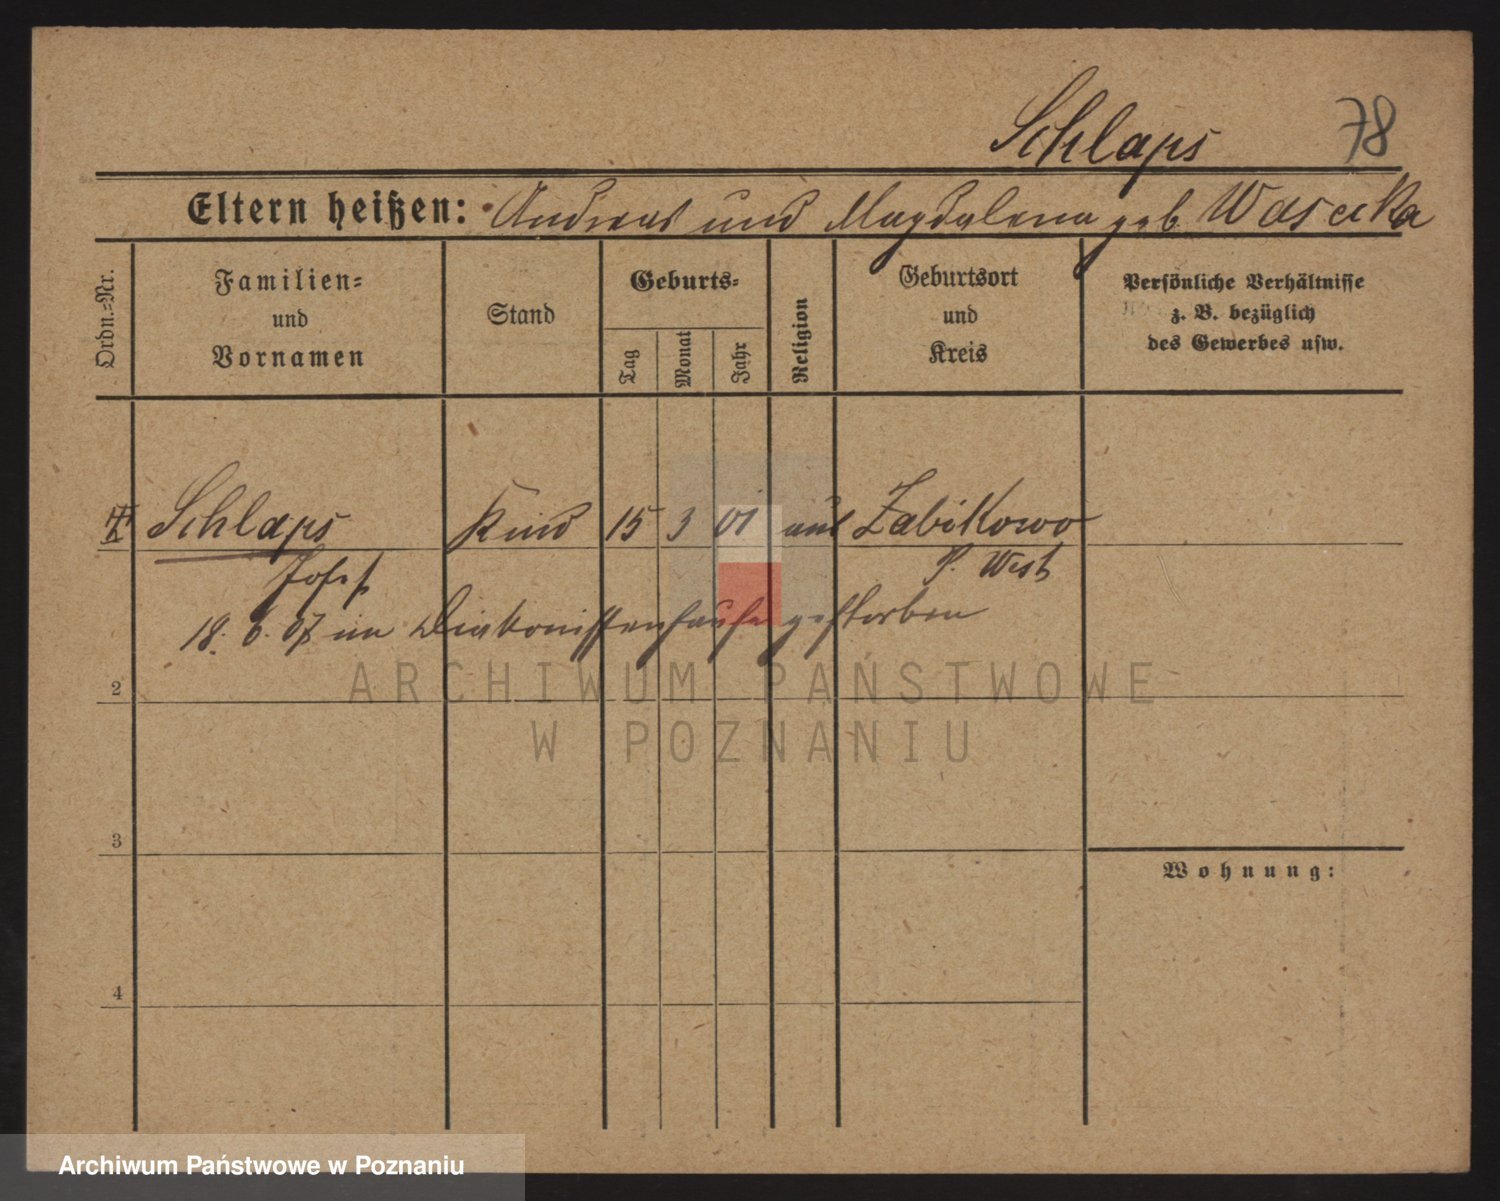 Schlaps 78
Eltern heißen: Andreas und Magdalena geb. Wasecka
Ordn.=Nr.
Familien=
und
Vornamen
Stand
Geburts=
Tag
Monat
Jahr
Religion
Geburtsort
und
Kreis
Persönliche Verhältnisse
z. B. bezüglich
des Gewerbes usw.
Schlaps Kind 15 3 01 aus Zabikowo
Josef P. West
18. 6. 07 im Diakonissenhause gestorben
2
3
4
Wohnung:
ARCHIWUM PAŃSTWOWE
W POZNANIU
Archiwum Państwowe w Poznaniu